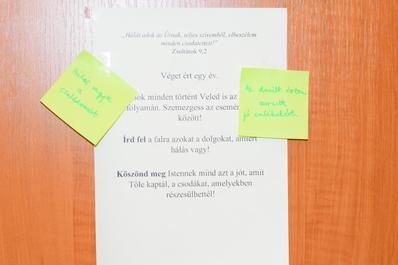 „Hálát adok az Úrnak, teljes szívemből, elbeszélem
minden csodatettét!”
Zsoltárok 9,2
Véget ért egy év.
sok minden történt Veled is az
folyamán. Szemezgess az esemé
között!
Írd fel a falra azokat a dolgokat, amiért
hálás vagy!
Köszönd meg Istennek mind azt a jót, amit
Tőle kaptál, a csodákat, amelyekben
részesülhettél!
Hálás vagyok
a családomért
Az elmúlt évben
szerzett
jó emlékekért